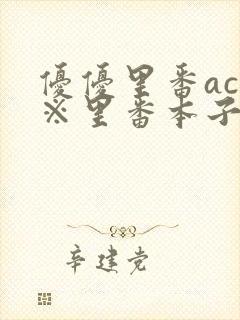 優優里番ac
※里番本子
辛建党